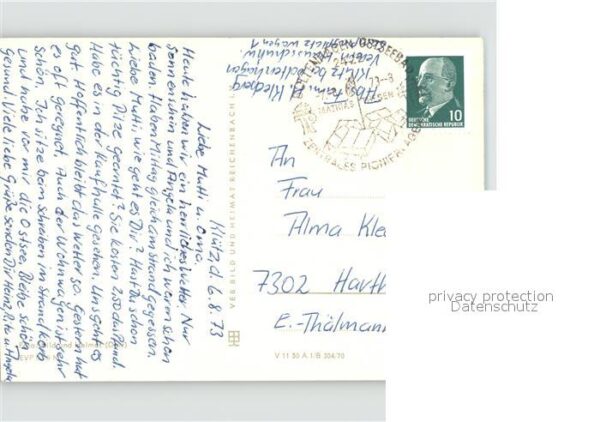 Klütz d. 6.8.73
Liebe Mutti u. Oma.
Heute hatten wir ein herrliches Wetter. Nur
Sonnenschein und Angela und ich waren schon
baden. Haben Mittag gleich am Strand gegessen.
Liebe Mutti wie geht es Dir? Hast Du schon
tüchtig Pilze geerntet? Sie kosten 2,50 das Pfund.
Habe es in der Kaufhalle gesehen. Uns geht es
gut. Hoffentlich bleibt das Wetter so. Gestern hat
es oft geregnet. Auch der Wohnwagen ist sehr
schön. Ich sitze beim schreiben im Strandkorb
und habe vor mir die Ostsee. Bleibe schön
Gesund. Viele liebe Grüße senden Dir Heinz, Rita u. Angela
Abs. Fam. H. Kledberg
Klütz
VEB BILD UND HEIMAT REICHENBACH
ZENTRALES PIONIERLAGER
10
DEUTSCHE
DEMOKRATISCHE REPUBLIK
An
Frau
Alma Kle
7302 Harth
E.-Thälmann
V 11 50 A 1/B 304/70
privacy protection
Datenschutz